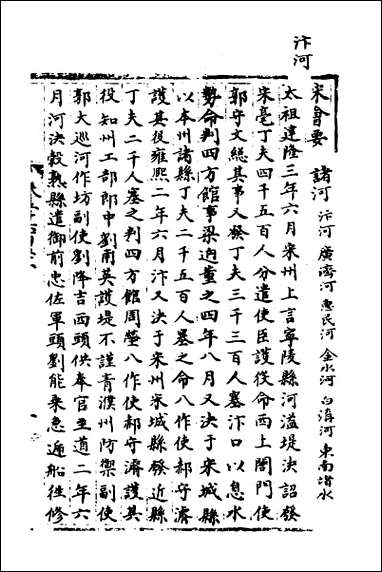 汴河
宋㑹要
諸河 汴河 廣濟河 惠民河 金水河 白溝河 東南諸水
太祖建隆三年六月宋州上言寧陵縣河溢堤決詔發
宋亳丁夫四千五百人分遣使臣護役命西上閤門使
郭守文總其事又發丁夫三千三百人塞汴口以息水
勢命判四方館事梁逈董之四年八月又決于宋城縣
以本州諸縣丁夫二千五百人塞之命八作使郝守濬
護其役雍熙二年六月汴又決于宋州宋城縣發近縣
丁夫二千人塞之判四方館周瑩八作使郝守濬護其
役知州工部郎中劉甫英護堤不謹責濮州防禦副使
郭大巡河作坊副使劉降吉西頭供奉官至道二年六
月河決穀熟縣遣御前忠佐軍頭劉能乘急逓船徃修